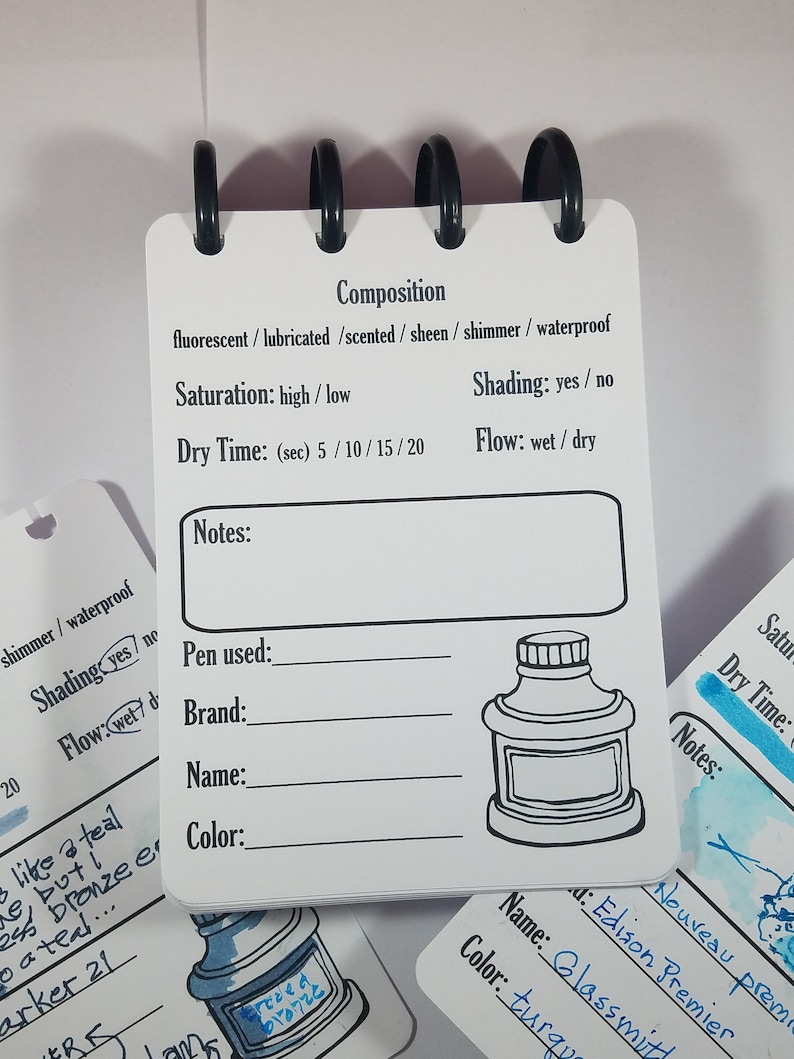 Composition
fluorescent / lubricated /scented / sheen / shimmer / waterproof
Saturation: high / low
Shading: yes / no
Dry Time: (sec) 5 / 10 / 15 / 20
Flow: wet / dry
Notes:
Pen used:
Brand:
Name:
Color:
shimmer / waterproof
Shading: yes / no
Flow: wet /
20
like a teal
but I
bronze
a teal...
21
Dry Time:
Notes:
Nouveau
Edison Premier
Name: Glassmith
Color: